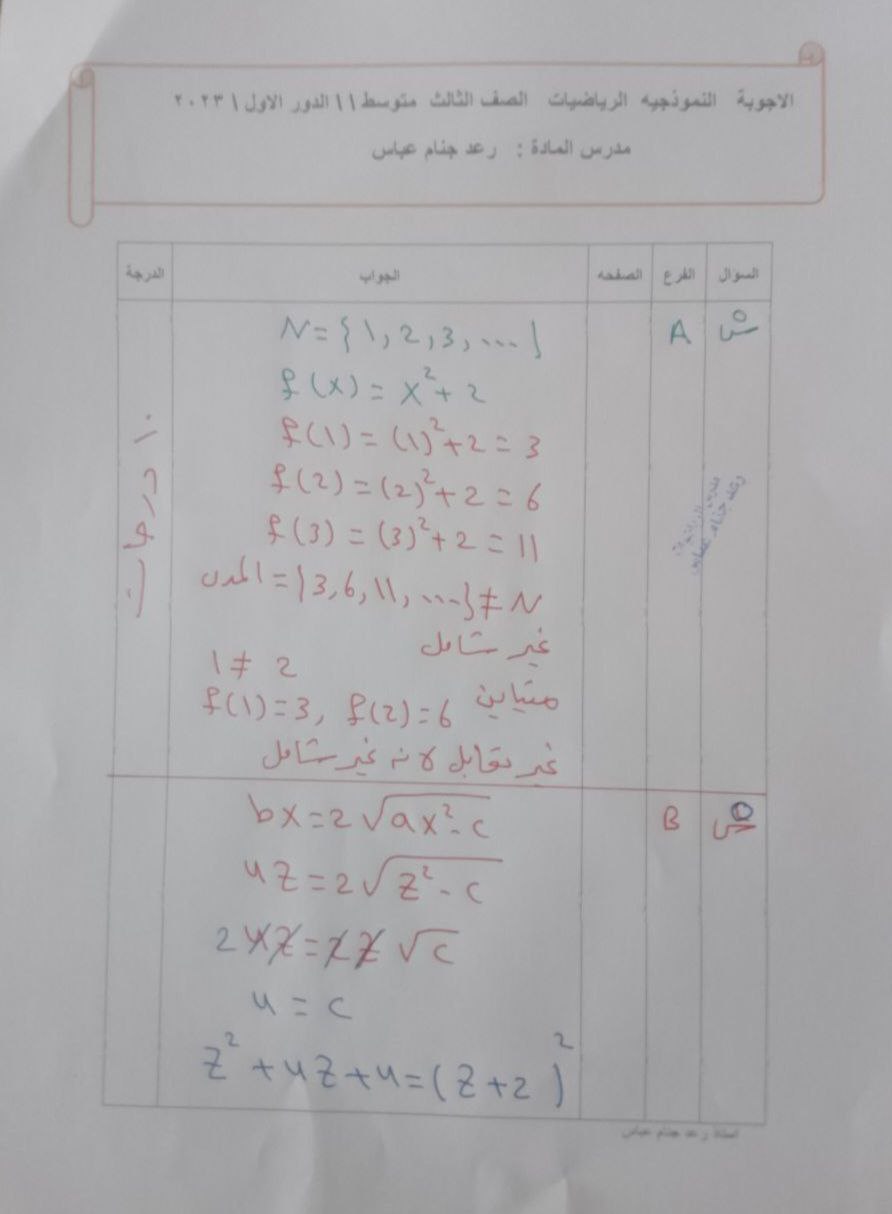 الاجوبة النموذجيه الرياضيات الصف الثالث متوسط ١١ الدور الاول ١ ٢٠٢٣
مدرس المادة : رعد جنام عباس
السؤال الفرع الصفحه الجواب الدرجة
A
N={1,2,3,...}
f(x)=x²+2
f(1)=(1)²+2=3
f(2)=(2)²+2=6
f(3)=(3)²+2=11
المدى={3,6,11,...}≠N
غير شامل
1≠2
متباين f(1)=3, f(2)=6
غير تقابل لانه غير شامل
١٠ درجات
B
bx=2√ax²·c
4z=2√z²·c
2 4z=2z√c
4=c
z²+4z+4=(z+2)²
استاذ رعد جنام عباس